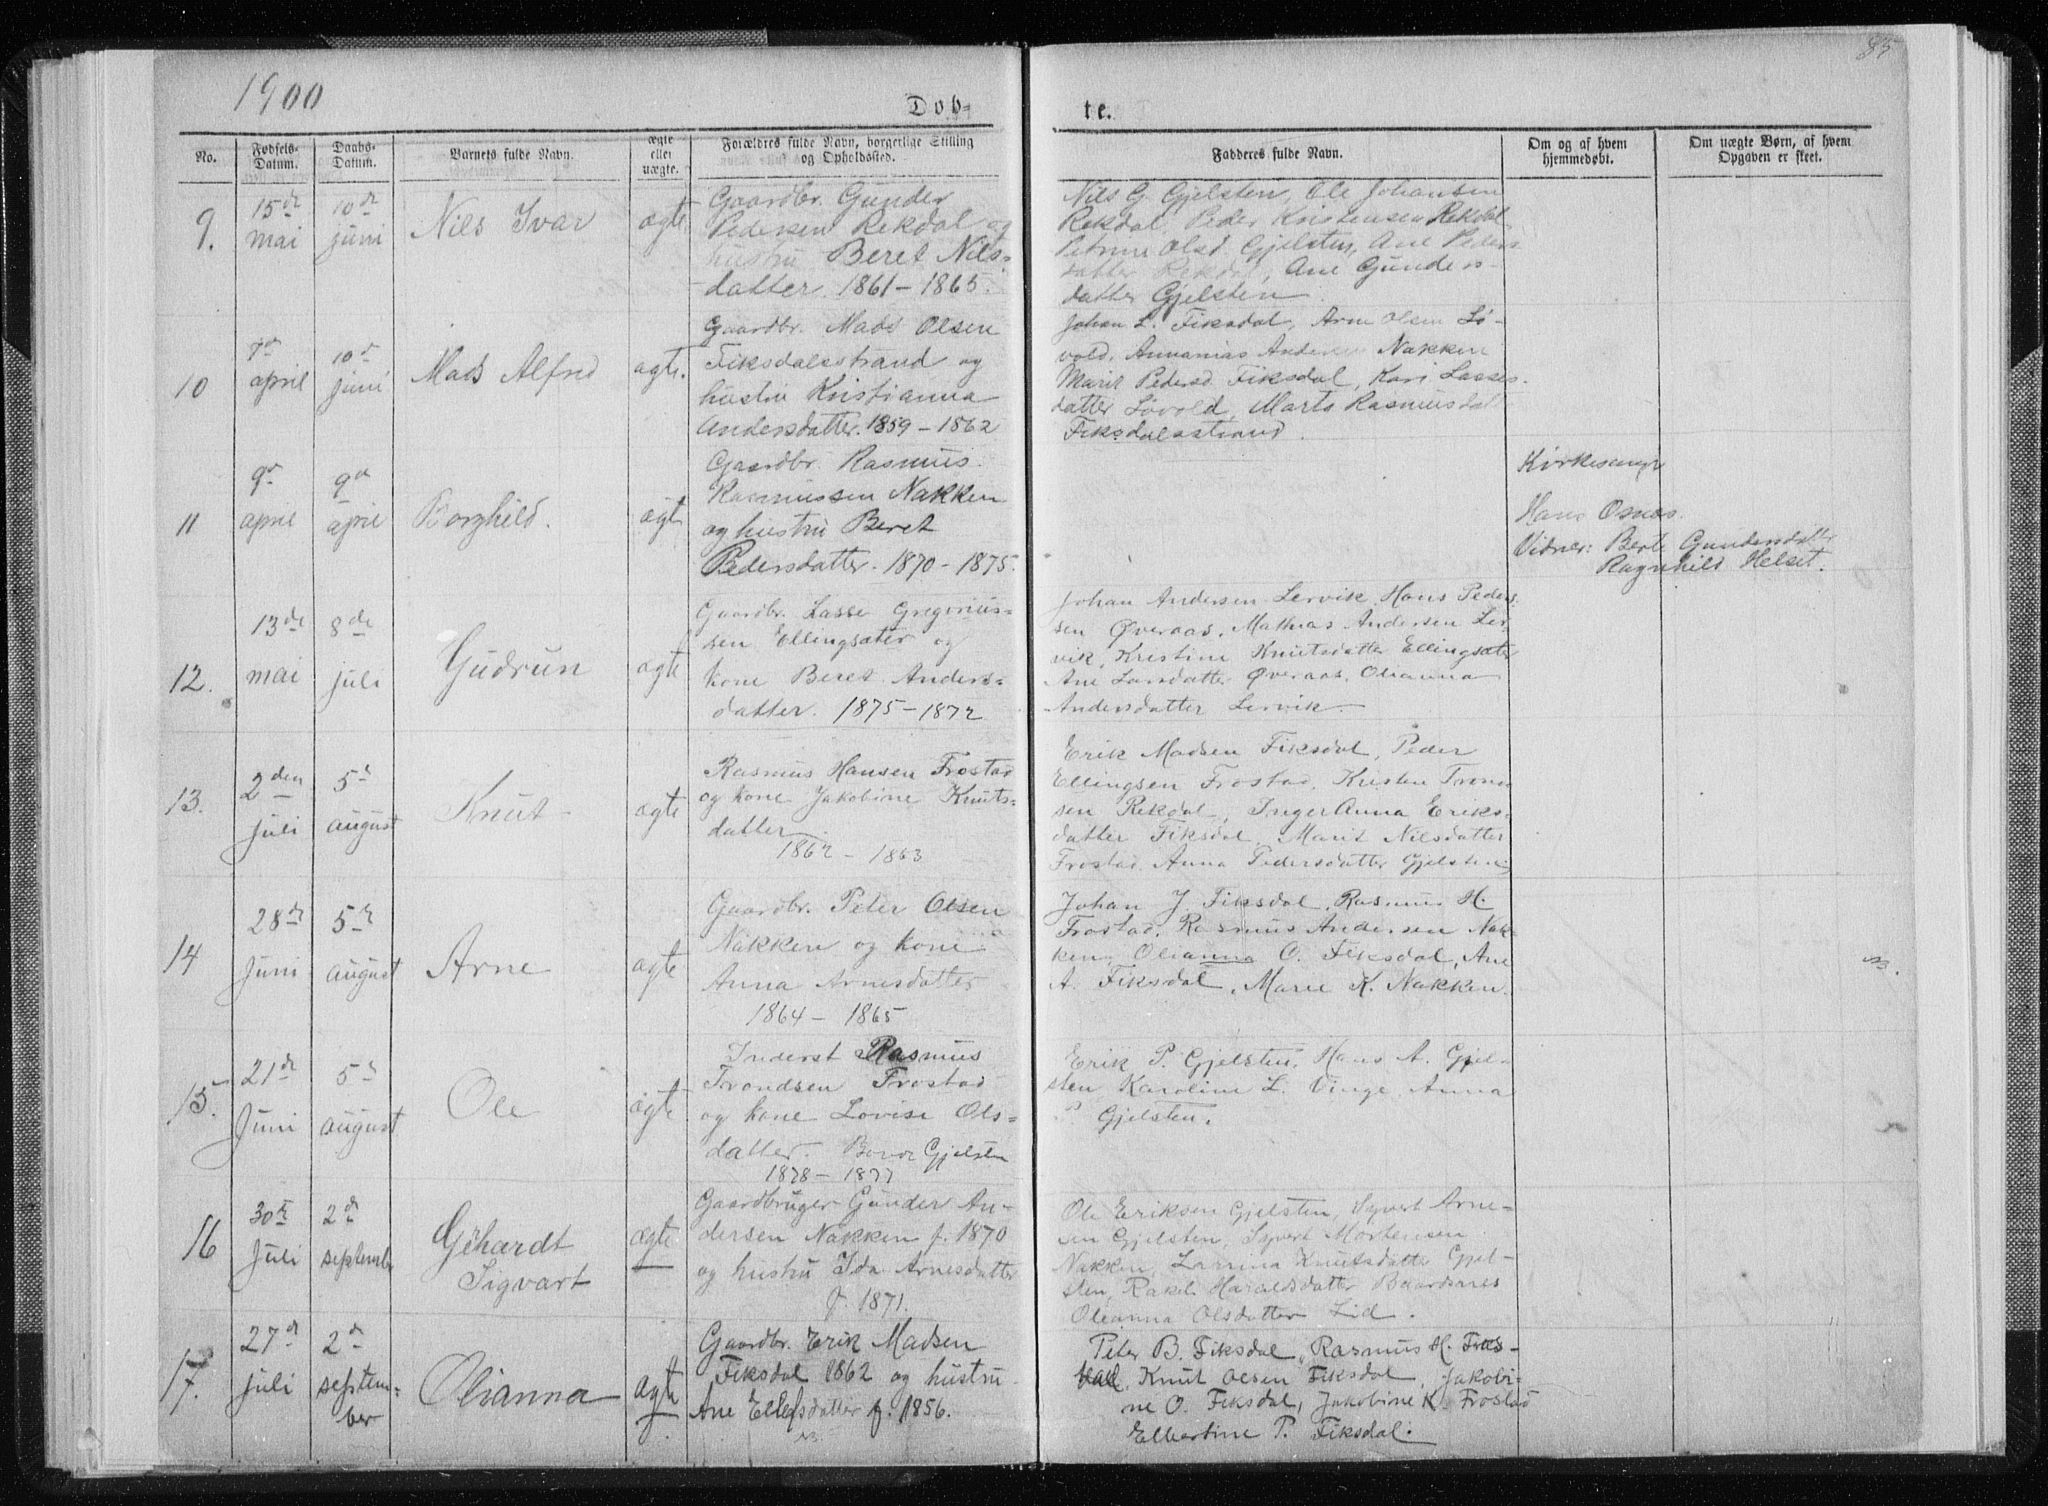 1900
83
Døb=
te.
No.
Fødsels-
Datum.
Daabs-
Datum.
Barnets fulde Navn.
ægte
eller
uægte.
Forældres fulde Navn, borgerlige Stilling
og Opholdssted.
Fadderes fulde Navn.
Om og af hvem
hjemmedøbt.
Om uægte Børn, af hvem
Opgaven er skeet.
9.
15de
mai
10de
juni
Nils Ivar
ægte
Gaardbr. Gunder
Pedersen Rekdal og
hustru Beret Nils=
datter. 1861 – 1865.
Nils G. Gjelsten, Ole Johansen
Rekdal, Peder Kristensen Rekdal
Petrine Olsd. Gjelsten, Ane Peders
datter Rekdal, Ane Gunders-
datter Gjelsten
10
7de
april
10de
juni
Mads Alfred
ægte.
Gaardbr. Mads Olsen
Fiksdalsstrand og
hustru Kristianna
Andersdatter. 1859 – 1862
Johan L. Fiksdal, Arne Olsen Lø-
vold, Annanias Andersen Nakken
Marit Pedersd. Fiksdal, Kari Lasses-
datter Løvold, Marta Rasmusdat
Fiksdalsstrand.
11
9de
april
9de
april
Borghild.
ægte
Gaardbr. Rasmus
Rasmussen Nakken
og hustru Beret
Pedersdatter. 1870 – 1875.
Kirkesanger
Hans Osnes.
Vidner: Berte Gundersdatter
Ragnhild Helset.
12.
13de
mai
8de
juli
Gudrun
ægte
Gaardbr. Lasse Gregorius=
sen Ellingsæter og
kone Beret Anders=
datter. 1875 – 1872
Johan Andersen Lervik, Hans Peder-
sen Øveraas, Mathias Andersen Ler-
vik, Kristine Knutsdatter Ellingsæter
Ane Larsdatter Øveraas, Olianna
Andersdatter Lervik.
13.
2den
juli
5te
august
Knut
ægte
Rasmus Hansen Frostad
og kone Jakobine Knuts=
datter
1862 – 1863
Erik Madsen Fiksdal, Peder
Ellingsen Frostad, Kristen Trond
sen Rekdal, Inger Anna Eriks-
datter Fiksdal, Marit Nilsdatter
Frostad, Anna Pedersdatter Gjelsten
14
28de
Juni
5te
august
Arne
ægte
Gaardbr. Peter Olsen
Nakken og kone
Anna Arnesdatter
1864 – 1865
Johan J. Fiksdal, Rasmus H.
Frostad, Rasmus Andersen Nak-
ken, Olianna O. Fiksdal, Ane
A. Fiksdal, Marie K. Nakken.
15.
21de
Juni
5te
august
Ole
ægte
Inderst Rasmus
Trondsen Frostad
og kone Lovise Ols=
datter. Bevor Gjelsten
1878 – 1877
Erik P. Gjelsten, Hans A. Gjel-
sten, Karoline L. Vinge, Anna
P. Gjelsten.
16
30te
Juli
2de
septembr
Gehardt
Sigvart
ægte
Gaardbruger Gunder An-
dersen Nakken f. 1870
og hustru Ida Arnesdatter
f. 1871.
Ole Eriksen Gjelsten, Syvert Arne-
sen Gjelsten, Syvert Mortensen
Nakken, Larrina Knutsdatter Gjel-
sten, Rakel Haraldsdatter Baardsnes
Oleanna Olsdatter Lid.
17.
27de
juli
2de
septem-
ber
Olianna
ægte
Gaardbr. Erik Madsen
Fiksdal 1862 og hustru
Ane Ellefsdatter f. 1856.
Peter B. Fiksdal, Rasmus H. Fros-
tad, Knut Olsen Fiksdal, Jakobi-
ne O. Fiksdal, Jakobine K. Frostad
Elbertine P. Fiksdal.